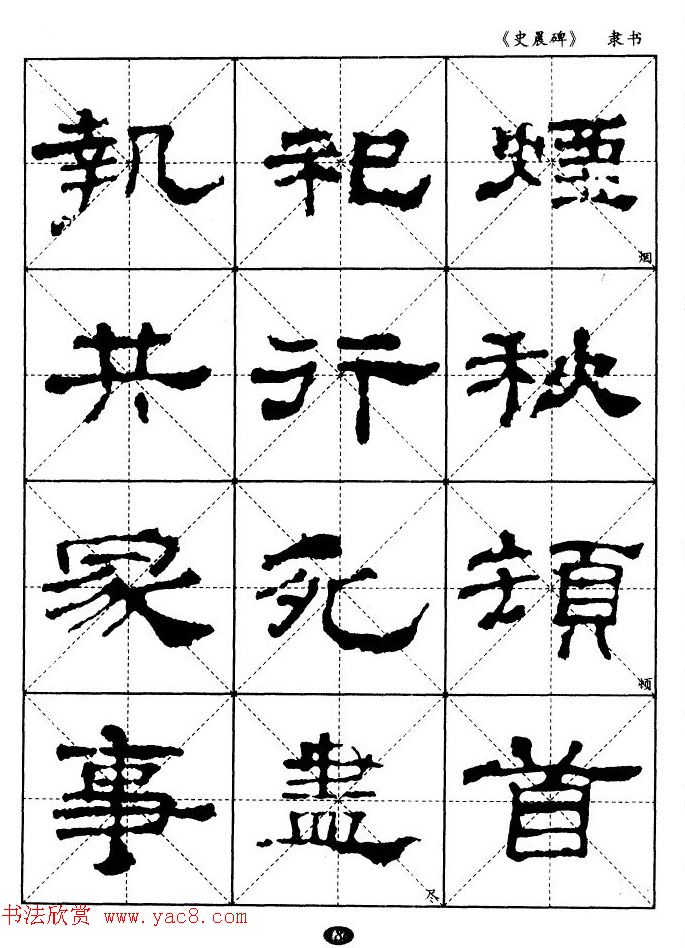 《史晨碑》 隶书
煙祀執
烟
秋行共
頓死冢
顿
首盡事
尽
书法欣赏 www.yac8.com